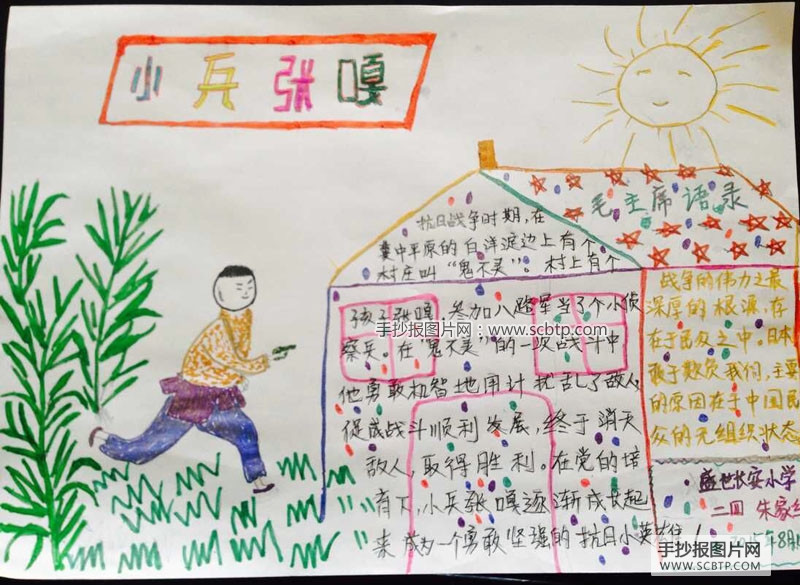 小兵张嘎
抗日战争时期，在
冀中平原的白洋淀边上有个
村庄叫“鬼不灵”。村上有个
孩子张嘎，参加八路军当了个小侦
察兵。在“鬼不灵”的一次战斗中
他勇敢机智地用计扰乱了敌人
促成战斗顺利发展，终于消灭
敌人，取得胜利。在党的培
育下，小兵张嘎逐渐成长起
来成为一个勇敢坚强的抗日小英雄
毛主席语录
战争的伟力之最
深厚的根源，存
在于民众之中。日本
敢于欺负我们，主要
的原因在于中国民
众的无组织状态
盛世长安小学
二四 朱家
年8月
手抄报图片网：www.scbtp.com
手抄报图片网
WWW.SCBTP.COM